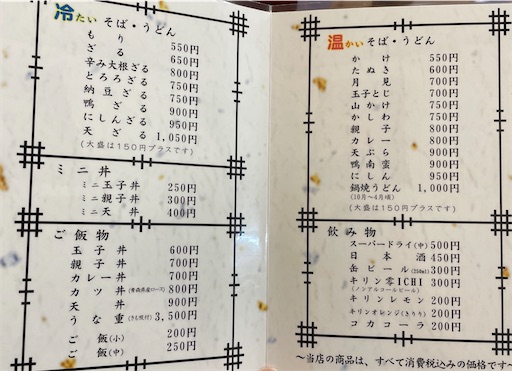 冷たいそば・うどん
もり 550円
ざる 650円
辛み大根ざる 800円
とろろざる 750円
納豆ざる 750円
鴨ざる 900円
にしんざる 950円
天ざる 1,050円
(大盛は150円プラスです)
ミニ丼
ミニ玉子丼 250円
ミニ親子丼 300円
ミニ天丼 400円
ご飯物
玉子丼 600円
親子丼 700円
カレー丼 700円
カツ丼(青森県産ロース) 800円
天丼 900円
うな重(きも吸付) 3,500円
ご飯(小) 200円
ご飯(中) 250円
温かいそば・うどん
かけ 550円
たぬき 600円
月見 700円
玉子とじ 700円
山かけ 750円
かしわ 750円
親子 800円
カレー 800円
天ぷら 900円
鴨南蛮 900円
にしん 950円
鍋焼うどん 1,000円
(10月〜4月頃)
(大盛は150円プラスです)
飲み物
スーパードライ(中) 500円
日本酒 450円
缶ビール(250ml) 300円
キリン零ICHI 300円
(ノンアルコールビール)
キリンレモン 200円
キリンオレンジ(きりり) 200円
コカコーラ 200円
〜当店の商品は、すべて消費税込みの価格です〜